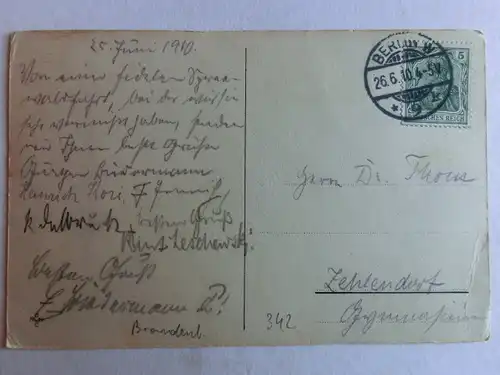 25. Juni 1910.
Von einer fidelen Spree-
waldfahrt, bei der wir Sie
sehr vermißt haben, senden
wir Ihnen beste Grüße
Biedermann
Heinrich
K. Delbrück besten Gruß
Kurt Leschewski.
Besten Gruß
Biedermann
Brandenb.
BERLIN W
26.6.10. 4-5N.
* 9
5
DEUTSCHES REICH
Herrn Dr. Thous
Zehlendorf
Gymnasium
342